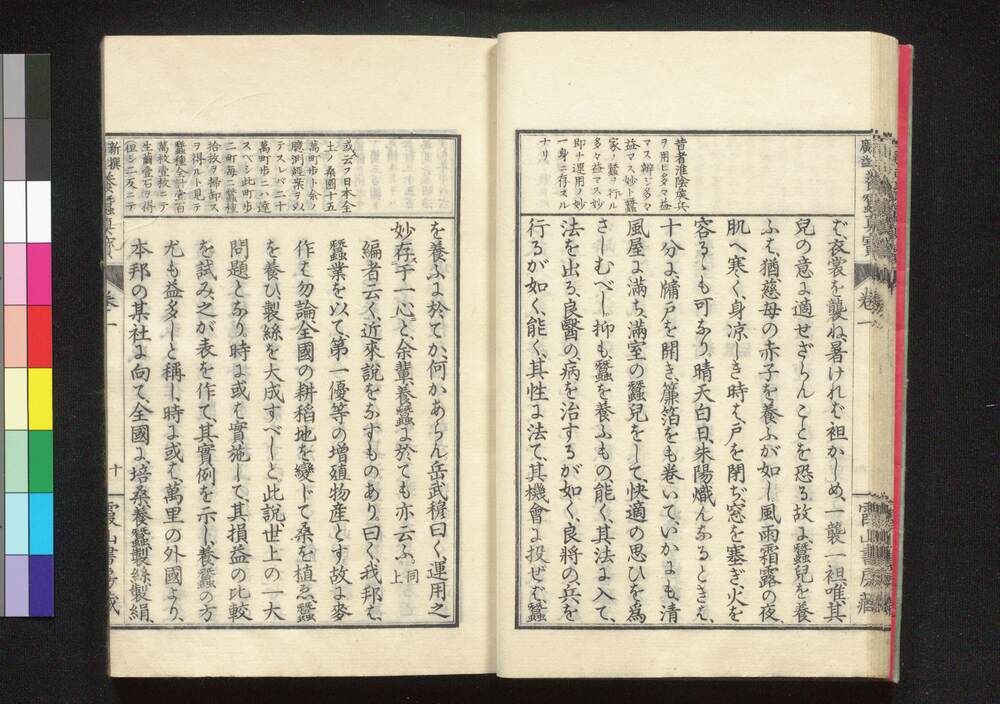 昔者淮陰侯兵
ヲ用ヒ多々益
マス辨ジ多々
益マス妙ト蠶
家ノ蠶ヲ行ル
多々益マス妙
即チ運用ノ妙
一身ニ存スル
ナリ
バ衣裳を襲ね、暑けれバ袒かしめ、一襲一袒唯其
兒の意に適せざらんことを恐る、故に蠶兒を養
ふは、猶慈母の赤子を養ふが如し、風雨霜露の夜、
肌へ寒く、身凉しき時は、戸を閉ぢ、窓を塞ぎ、火を
容るゝも可なり、晴天白日、朱陽熾んなるときは、
十分に牖戸を開き、簾箔をも巻いて、いかにも、清
風屋に満ち、滿室の蠶兒をして、快適の思ひを爲
さしむべし、抑も蠶を養ふもの、能く其法に入て、
法を出る、良醫の、病を治するが如く、良將の、兵を
行るが如く、能く、其性に法て、其機會に投ぜバ、蠶
新撰養蠶眞寳
卷一
十
霞山書房藏
を養ふに於てか、何かあらん、岳武穆曰く、運用之
妙存于一心と、余輩養蠶に於ても亦云ふ、同上
編者云く、近來説をなすものあり、曰く、我邦は、
蠶業を以て、第一優等の增殖物産とす、故に麥
作は勿論、全國の耕稻地を變じて桑を植ゑ、蠶
を養ひ、製絲を大成すべしと、此説世上の一大
問題となり、時に或は實施して、其損益の比較
を試み、之が表を作て、其實例を示し、養蠶の方
尤も益多しと稱し、時に或は、萬里の外國より、
本邦の某社に向て、全國に培桑、養蠶、製絲、製絹、
或云フ日本全
土ノ桑園十五
萬町歩ト余ノ
臆測經𬂎ヲ以
テスレバ二十
萬町歩ニハ達
スベシ此町歩
二町毎ニ蠶種
拾枚ヲ掃卸ス
ヲ得ベルト見テ
蠶種全計金百
萬枚壹枚ニテ
生繭壹石ヲ得